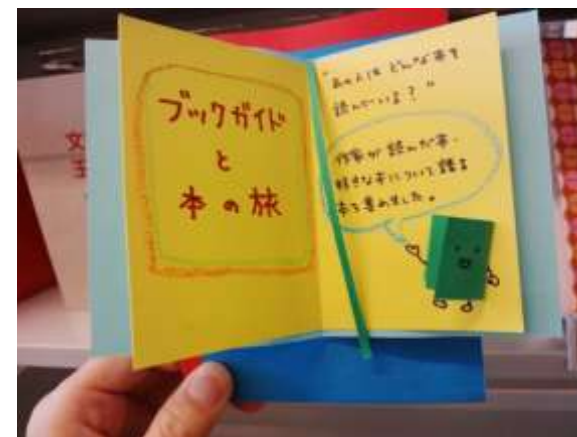 ブックガイド
と
本の旅
"あの人は どんな本を
読んでいる？"
作家が 読んだ本、
好きな本について語る
本を集めました。
文